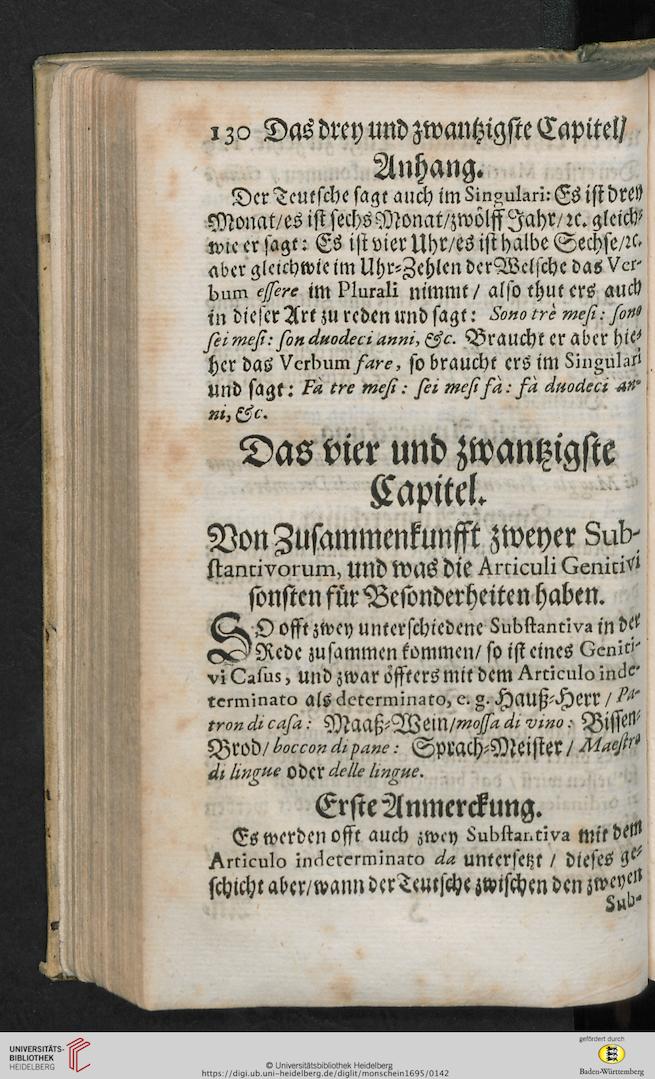 130 Das drey und zwantzigste Capitel/
Anhang.
Der Teutsche sagt auch im Singulari: Es ist drey
Monat/es ist sechs Monat/zwölff Jahr/ꝛc. gleich⸗
wie er sagt: Es ist vier Uhr/es ist halbe Sechse/ꝛc.
aber gleichwie im Uhr⸗Zehlen der Welsche das Ver-
bum essere im Plurali nimmt/ also thut ers auch
in dieser Art zu reden und sagt: Sono trè mesi: sono
sei mesi: son duodeci anni, &c. Braucht er aber hie⸗
her das Verbum fare, so braucht ers im Singulari
und sagt: Fà tre mesi: sei mesi fà: fà duodeci an-
ni, &c.
Das vier und zwantzigste
Capitel.
Von Zusammenkunfft zweyer Sub-
stantivorum, und was die Articuli Genitivi
sonsten für Besonderheiten haben.
SO offt zwey unterschiedene Substantiva in der
Rede zusammen kommen/ so ist eines Geniti-
vi Casus, und zwar öffters mit dem Articulo inde-
terminato als determinato, e. g. Hauß⸗Herr / Pa-
tron di casa: Maaß⸗Wein/mossa di vino: Bissen⸗
Brod/ boccon di pane: Sprach⸗Meister / Maestro
di lingue oder delle lingue.
Erste Anmerckung.
Es werden offt auch zwey Substantiva mit dem
Articulo indeterminato da untersetzt / dieses ge⸗
schicht aber/wann der Teutsche zwischen den zweyen
Sub-
UNIVERSITÄTS-
BIBLIOTHEK
HEIDELBERG
© Universitätsbibliothek Heidelberg
https://digi.ub.uni-heidelberg.de/diglit/monschein1695/0142
gefördert durch
Baden-Württemberg